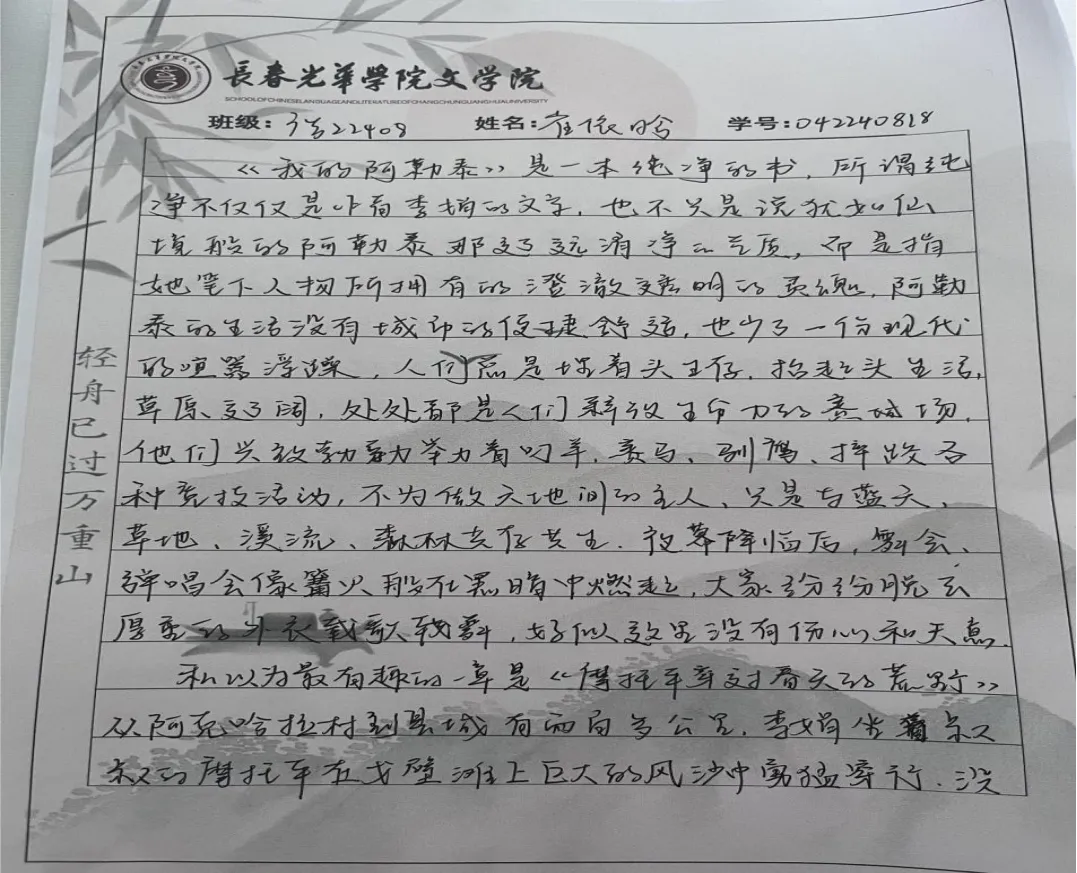 長春光華學院文学院
SCHOOLOFCHINESELANGUAGEANDLITERATUREOFCHANGCHUNGUANGHUAUNIVERSITY
班级：22408 姓名：崔依晗 学号：042240818
《我的阿勒泰》是一本纯净的书，所谓纯
净不仅仅是作者李娟的文字，也不只是说犹如仙
境般的阿勒泰那辽远清净的气质，而是指
她笔下人物所拥有的澄澈透明的灵魂，阿勒
泰的生活没有城市的便捷舒适，也少了一份现代
的喧嚣浮躁，人们总是埋着头生存，抬起头生活，
草原辽阔，处处都是人们释放生命力的竞技场，
他们兴致勃勃举办着叼羊、赛马、驯鹰、摔跤各
种竞技活动，不为做天地间的主人，只是与蓝天、
草地、溪流、森林共存共生。夜幕降临后，舞会、
弹唱会像篝火般在黑暗中燃起，大家纷纷脱去
厚重的外衣载歌载舞，好似这里没有伤心和
私以为最有趣的一章是《摩托车穿过春天的荒野》
从阿克哈拉村到县城有两百多公里，李娟坐着叔叔
的摩托车在戈壁滩上巨大的风沙中勇猛穿行，没
轻舟已过万重山